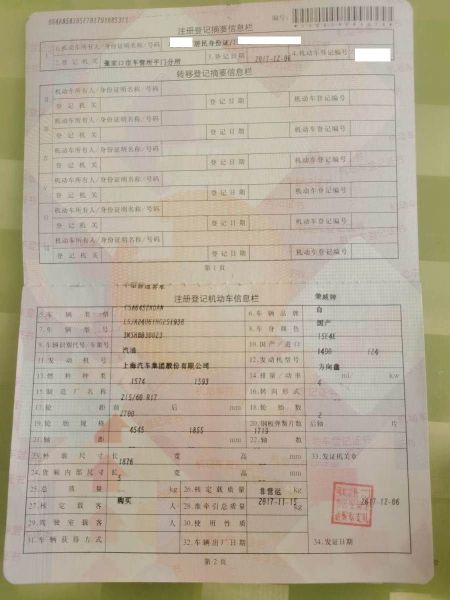 注册登记摘要信息栏
编号:
1.机动车所有人/身份证明名称/号码 居民身份证/
2.登记机关 张家口市车管所平门分所 3.登记日期 2017-12-06 4.机动车登记编号
转移登记摘要信息栏
机动车所有人/身份证明名称/号码
登记机关 登记日期 机动车登记编号
机动车所有人/身份证明名称/号码
登记机关 登记日期 机动车登记编号
机动车所有人/身份证明名称/号码
登记机关 登记日期 机动车登记编号
机动车所有人/身份证明名称/号码
登记机关 登记日期 机动车登记编号
机动车所有人/身份证明名称/号码
登记机关 登记日期 机动车登记编号
机动车所有人/身份证明名称/号码
登记机关 登记日期 机动车登记编号
第1页
注册登记机动车信息栏
荣威牌
5.车辆类型 6.车辆品牌 白
7.车辆型号 8.车身颜色 国产
9.车辆识别代号/车架号 10.国产/进口 15E4E
11.发动机号 汽油 12.发动机型号 1490 124
13.燃料种类 上海汽车集团股份有限公司 14.排量/功率 ml/ kw 方向盘
15.制造厂名称 1574 1593 16.转向形式 4
17.轮距 前 后 mm 215/60 R17 18.轮胎数
19.轮胎规格 2700 20.钢板弹簧片数 后轴 片 2
21.轴距 4545 1855 1719 mm 22.轴数
23.外廓尺寸 长 宽 高 mm 33.发证机关章
24.货箱内部尺寸 长 1876 宽 高 mm
25.总质量 5 kg 26.核定载质量 kg 非营运
27.核定载客 购买 人 28.准牵引总质量 kg 2017-11-15 2017-12-06
29.驾驶室载客 人 30.使用性质
31.车辆获得方式 32.车辆出厂日期 34.发证日期
第2页